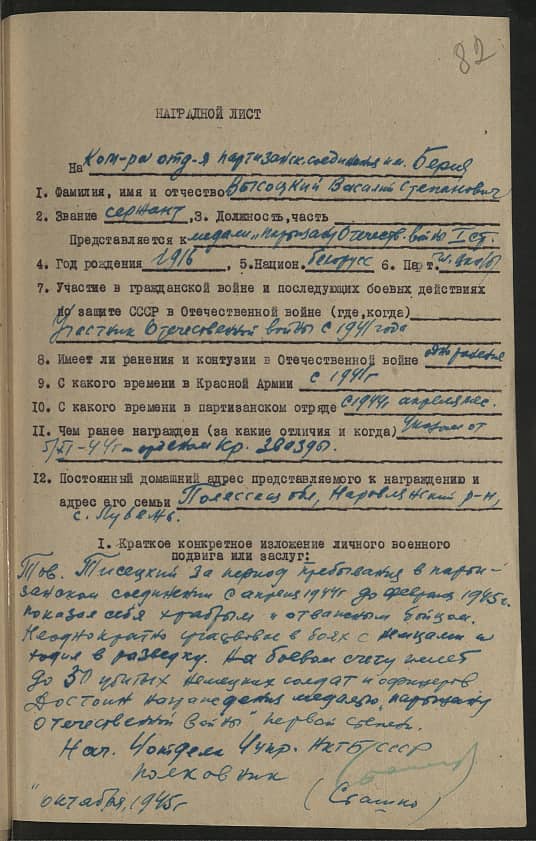 82
НАГРАДНОЙ ЛИСТ
На Ком-ра отд-я партизанск. соединения им. Берия
I. Фамилия, имя и отчество Высоцкий Василий Степанович
2. Звание сержант, 3. Должность, часть
Представляется к медали „Партизану Отечеств. войны I ст.
4. Год рождения 1916, 5. Национ. белорусс 6. Парт.
7. Участие в гражданской войне и последующих боевых действиях
по защите СССР в Отечественной войне (где, когда)
Участник Отечественной войны с 1941 года
8. Имеет ли ранения и контузии в Отечественной войне одно ранение
9. С какого времени в Красной Армии с 1941 г
10. С какого времени в партизанском отряде с 1944 г апреля мес.
II. Чем ранее награжден (за какие отличия и когда) Указом от
5/XI-44 г орденом Кр. Звезды.
12. Постоянный домашний адрес представляемого к награждению и
адрес его семьи Полесская обл, Наровлянский р-н,
с.
I. Краткое конкретное изложение личного военного
подвига или заслуг:
Тов. за период пребывания в парти-
занском соединении с апреля 1944 г до февраля 1945 г.
показал себя храбрым и отважным бойцом.
Неоднократно участвовал в боях с немцами и
ходил в разведку. На боевом счету имеет
до 30 убитых немецких солдат и офицеров
Достоин награждения медалью „Партизану
Отечественной войны" первой степени.
Нач. 4 отдела 4 упр. НКГБ СССР
полковник
(Сташко)
" октября, 1945 г